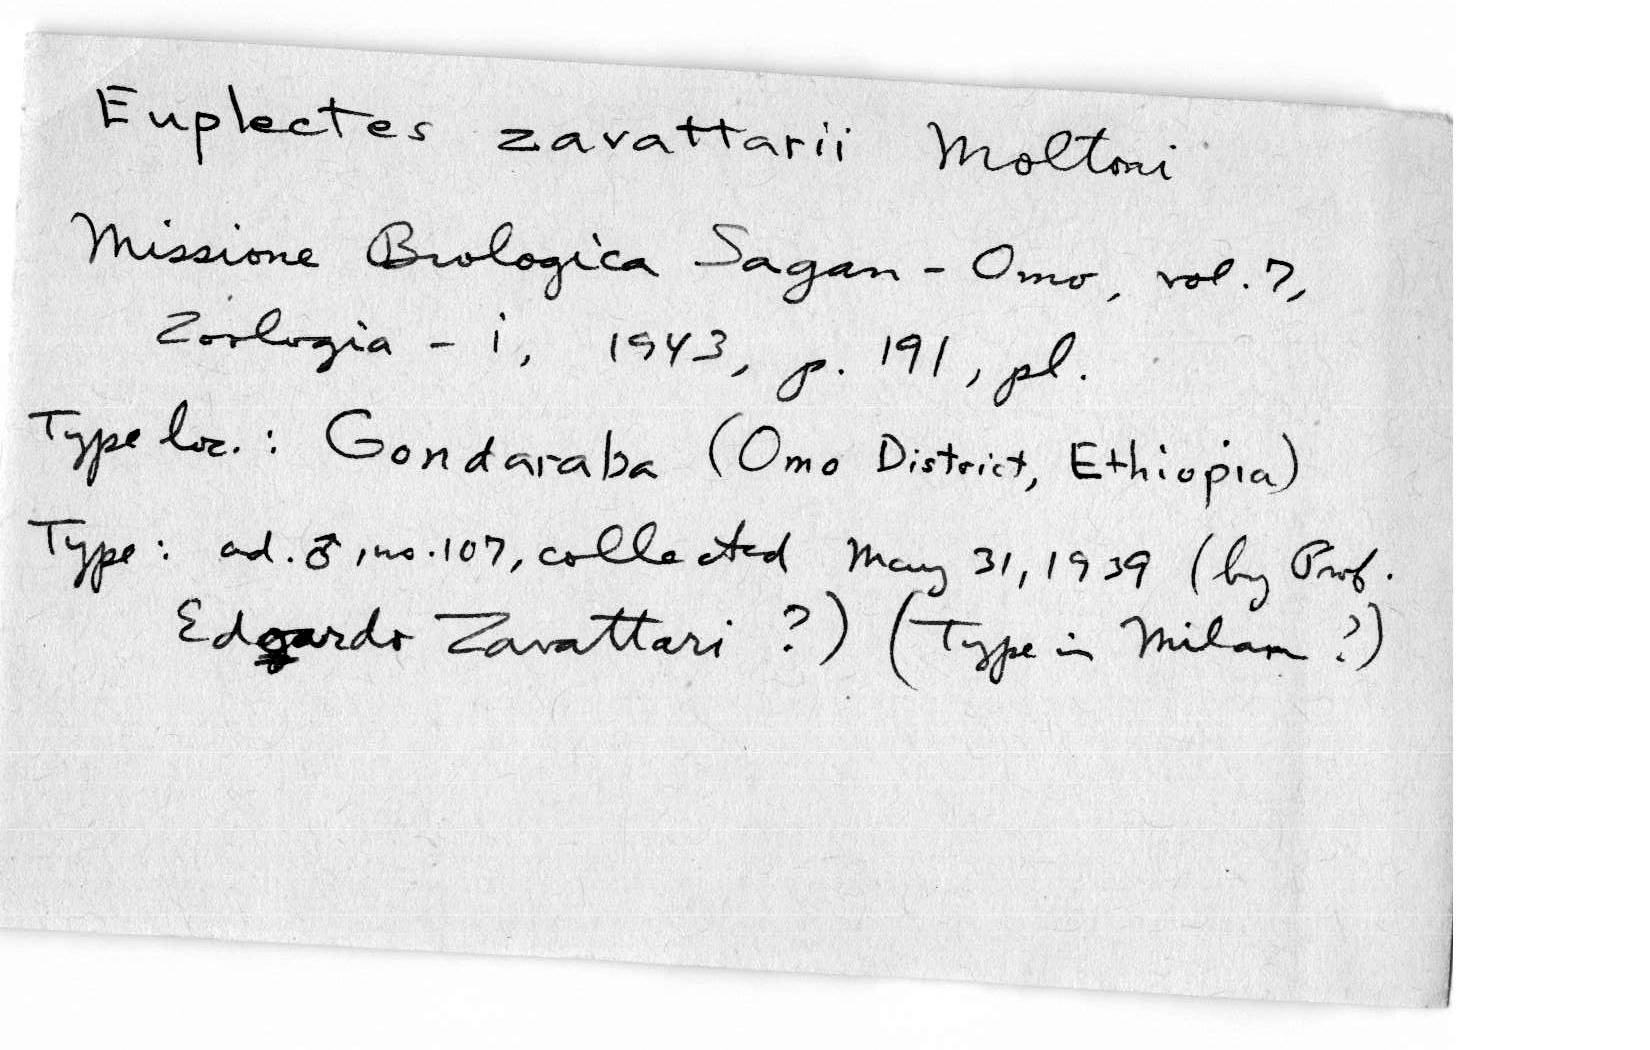 Euplectes zavattarii Moltoni
Missione Biologica Sagan - Omo, vol. 7,
Zoologia - i, 1943, p. 191, pl.
Type loc. : Gondaraba (Omo District, Ethiopia)
Type : ad. ♂, no. 107, collected May 31, 1939 (by Prof.
Edgardo Zavattari ?) (Type in Milan ?)